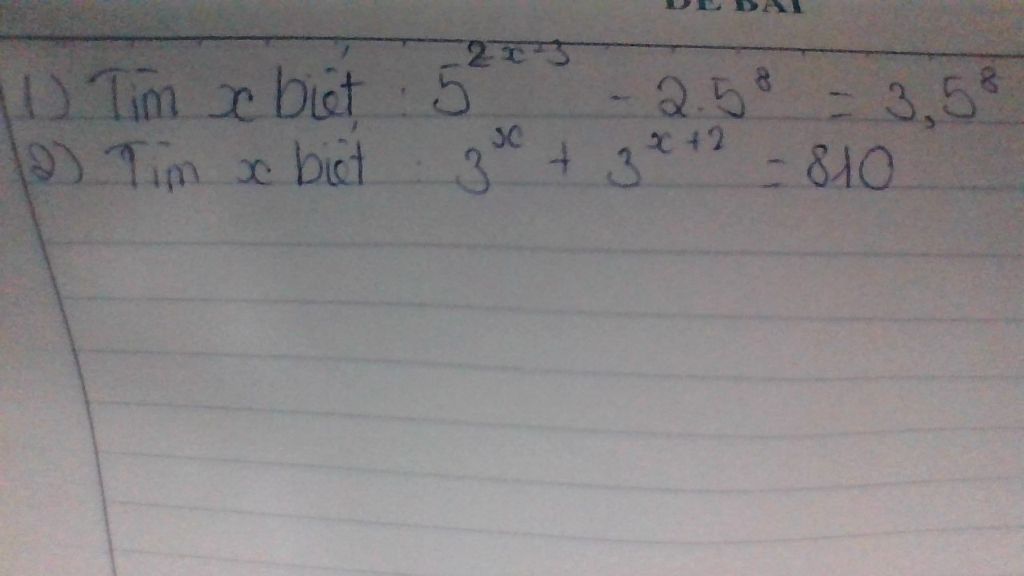 ĐỀ BÀI
1) Tìm x biết : 5^{2x-3} - 2.5^8 = 3,5^8
2) Tìm x biết : 3^x + 3^{x+2} = 810